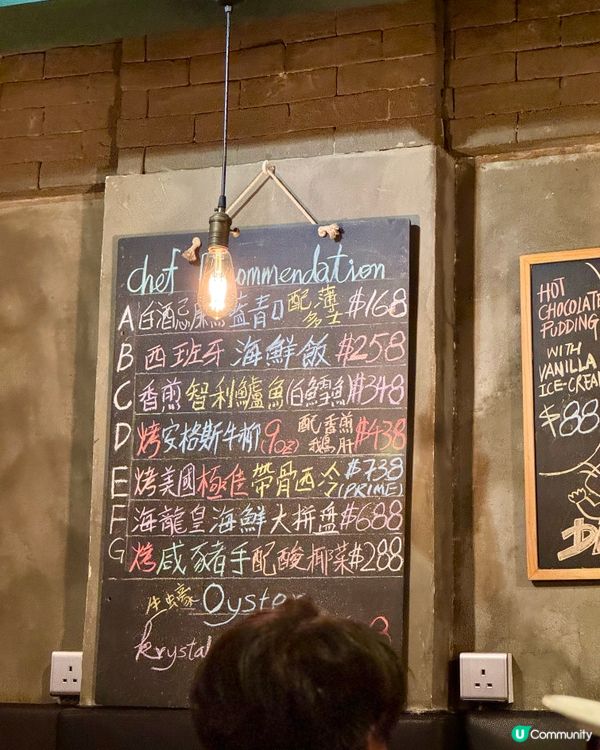 chef
mmendation
A 白酒忌廉煮藍青口 配薄多士 $168
B 西班牙海鮮飯 $258
C 香煎智利鱸魚(白鱈魚) $348
D 烤安格斯牛柳(9oz) 配香煎鵝肝 $438
E 烤美國極佳帶骨西冷 $738 (PRIME)
F 海龍皇海鮮大拼盘 $688
G 烤咸豬手配酸椰菜 $288
Oyster
Krystal
HOT
CHOCOLATE
PUDDING
WITH
VANILLA
ICE-CREA
$88
U Community